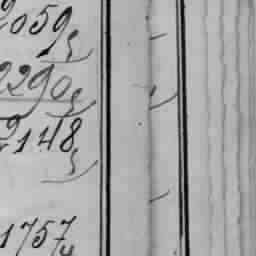 2059
2290
2148
1757